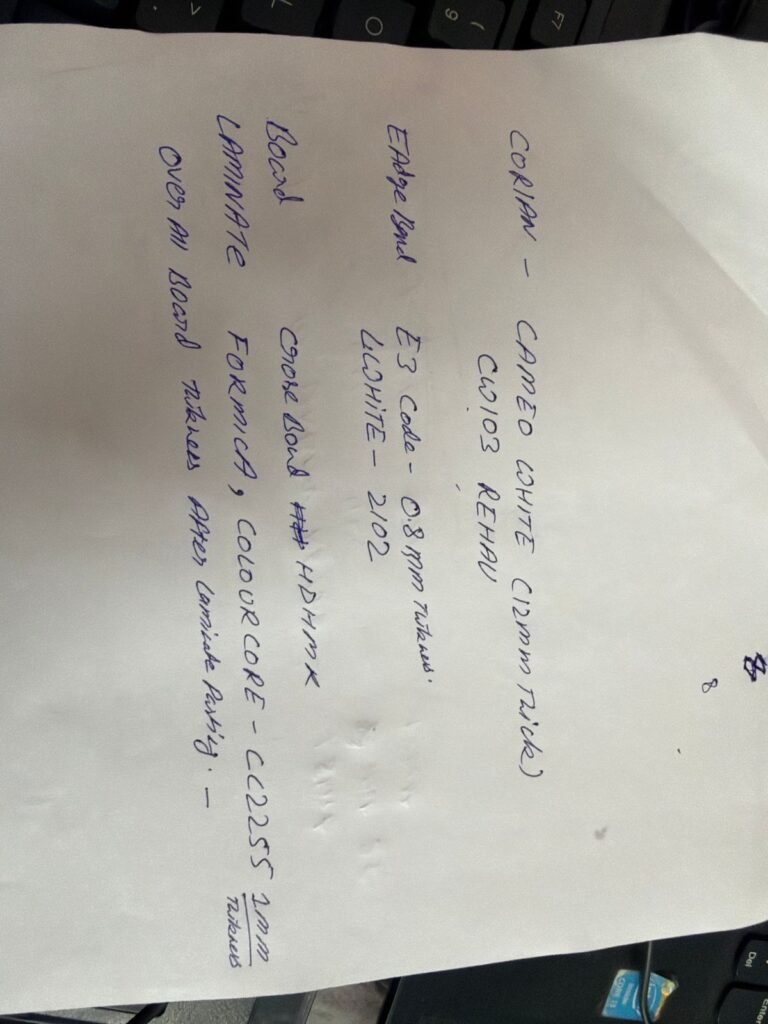 8
CORIAN - CAMEO WHITE (12mm Thick)
CW103 REHAU
EAdge Band E3 Code - 0.8mm Thiknes.
WHITE - 2102
Board HDHMR
LAMINATE FORMICA, COLOURCORE - CC2255 1mm
Thiknes
over All Board Thiknes After Laminate Pasting. -
F7
Del
Enter
CORE i3